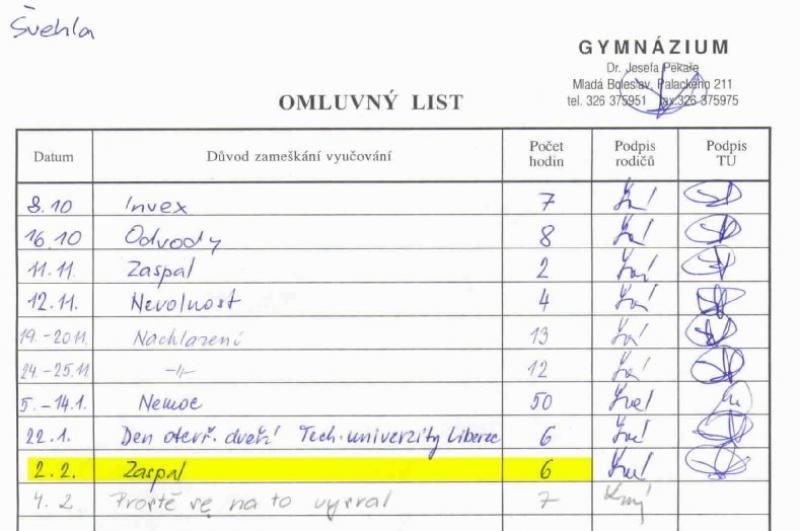 Švehla
GYMNÁZIUM
Dr. Josefa Pekaře
Mladá Boleslav, Palackého 211
tel. 326 375951 fax 326 375975
OMLUVNÝ LIST
Datum Důvod zameškání vyučování Počet hodin Podpis rodičů Podpis TU
8.10 Invex 7
16.10 Odvody 8
11.11. Zaspal 2
12.11. Nevolnost 4
19.-20.11. Nachlazení 13
24.-25.11 -||- 12
5.-14.1. Nemoc 50
22.1. Den otevř. dveří Tech. univerzity Liberec 6
2.2. Zaspal 6
4.2. Prostě se na to vysral 7